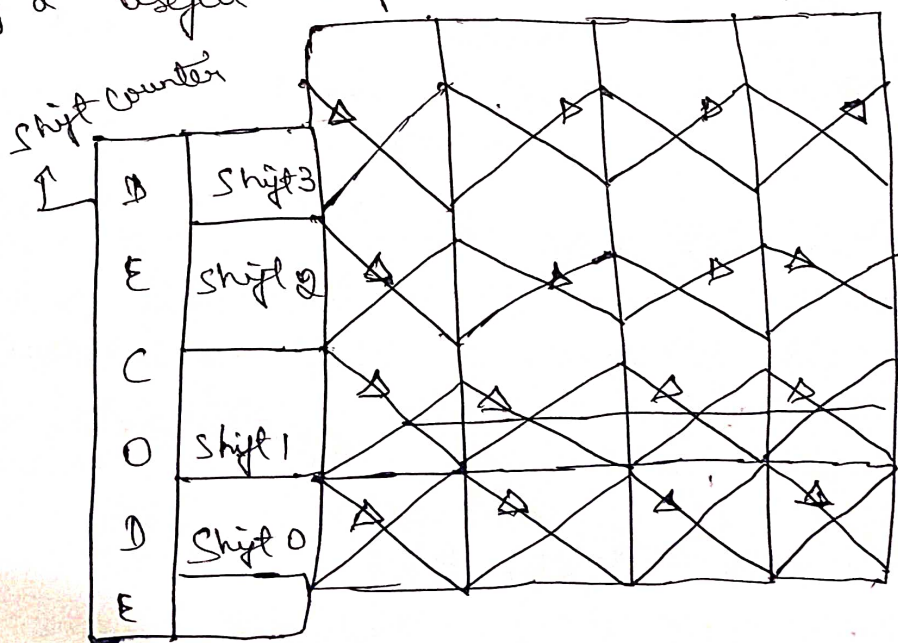 a useful
Shift counter
D
E
C
O
D
E
Shift 3
Shift 2
Shift 1
Shift 0